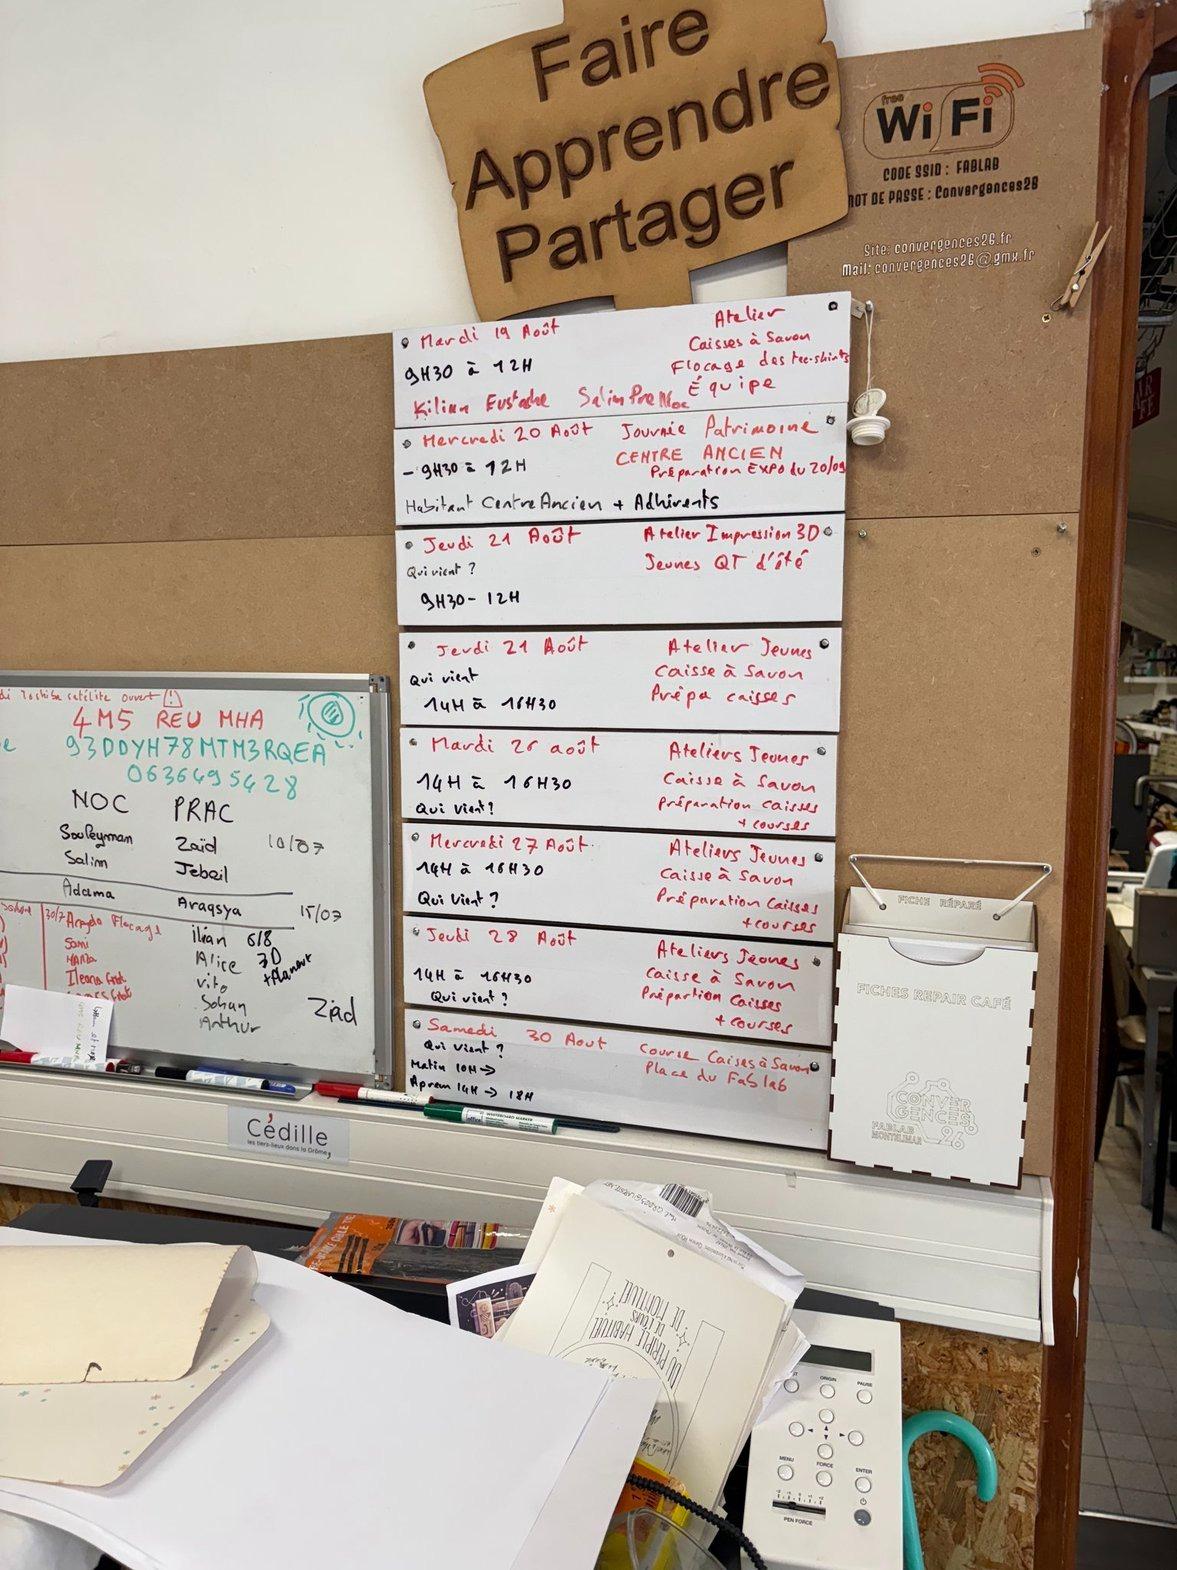 Faire
Apprendre
Partager
free
Wi Fi
CODE SSID : FABLAB
MOT DE PASSE : Convergences26
Site: convergences26.fr
Mail: convergences26@gmx.fr
Mardi 19 Août
Atelier
9H30 à 12H
Caisses à Savon
Flocage des tee-shirts
Équipe
Kilian Eustache Salim
Mercredi 20 Août
Journée Patrimoine
CENTRE ANCIEN
- 9H30 à 12H
Préparation EXPO du 20/09
Habitant Centre Ancien + Adhérents
Jeudi 21 Août
Atelier Impression 3D
Qui vient ?
Jeunes QT d'été
9H30 - 12H
Jeudi 21 Août
Atelier Jeunes
Qui vient
Caisse à Savon
14H à 16H30
Prépa caisses
Mardi 26 août
Ateliers Jeunes
14H à 16H30
Caisse à Savon
Qui vient ?
Préparation caisses
+ courses
Mercredi 27 Août
Ateliers Jeunes
14H à 16H30
Caisse à Savon
Qui vient ?
Préparation Caisses
+ courses
Jeudi 28 Août
Ateliers Jeunes
14H à 16H30
Caisse à Savon
Qui vient ?
Prépartion Caisses
+ courses
Samedi 30 Aout
Course Caises à Savon
Qui vient ?
Place du Fablab
Matin 10H →
Aprem 14H → 18H
Toshiba satélite ouvert
4M5 REU MHA
93DDYH78MTM3RQEA
0636495428
NOC PRAC
Souleyman Zaïd 10/07
Salim Jebril
Adama Araqsya 15/07
30/7
Flocage
Sami
Ileana
ilian 6/8
Alice 3D
vito
Sohan
Anthur
Ziad
Cédille
les tiers-lieux dans la Drôme
FICHE RÉPARÉ
FICHES REPAIR CAFÉ
CONVER
GENCES
26
FABLAB
MONTELIMAR
DU PÉRIPLE HABITUEL
ORIGIN
PAUSE
MENU
FORCE
ENTER
PEN FORCE